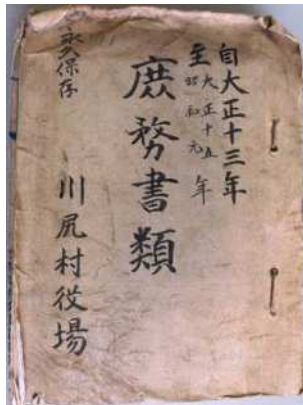 自大正十三年
至大正十五 昭和元 年
庶務書類
永久保存
川尻村役場